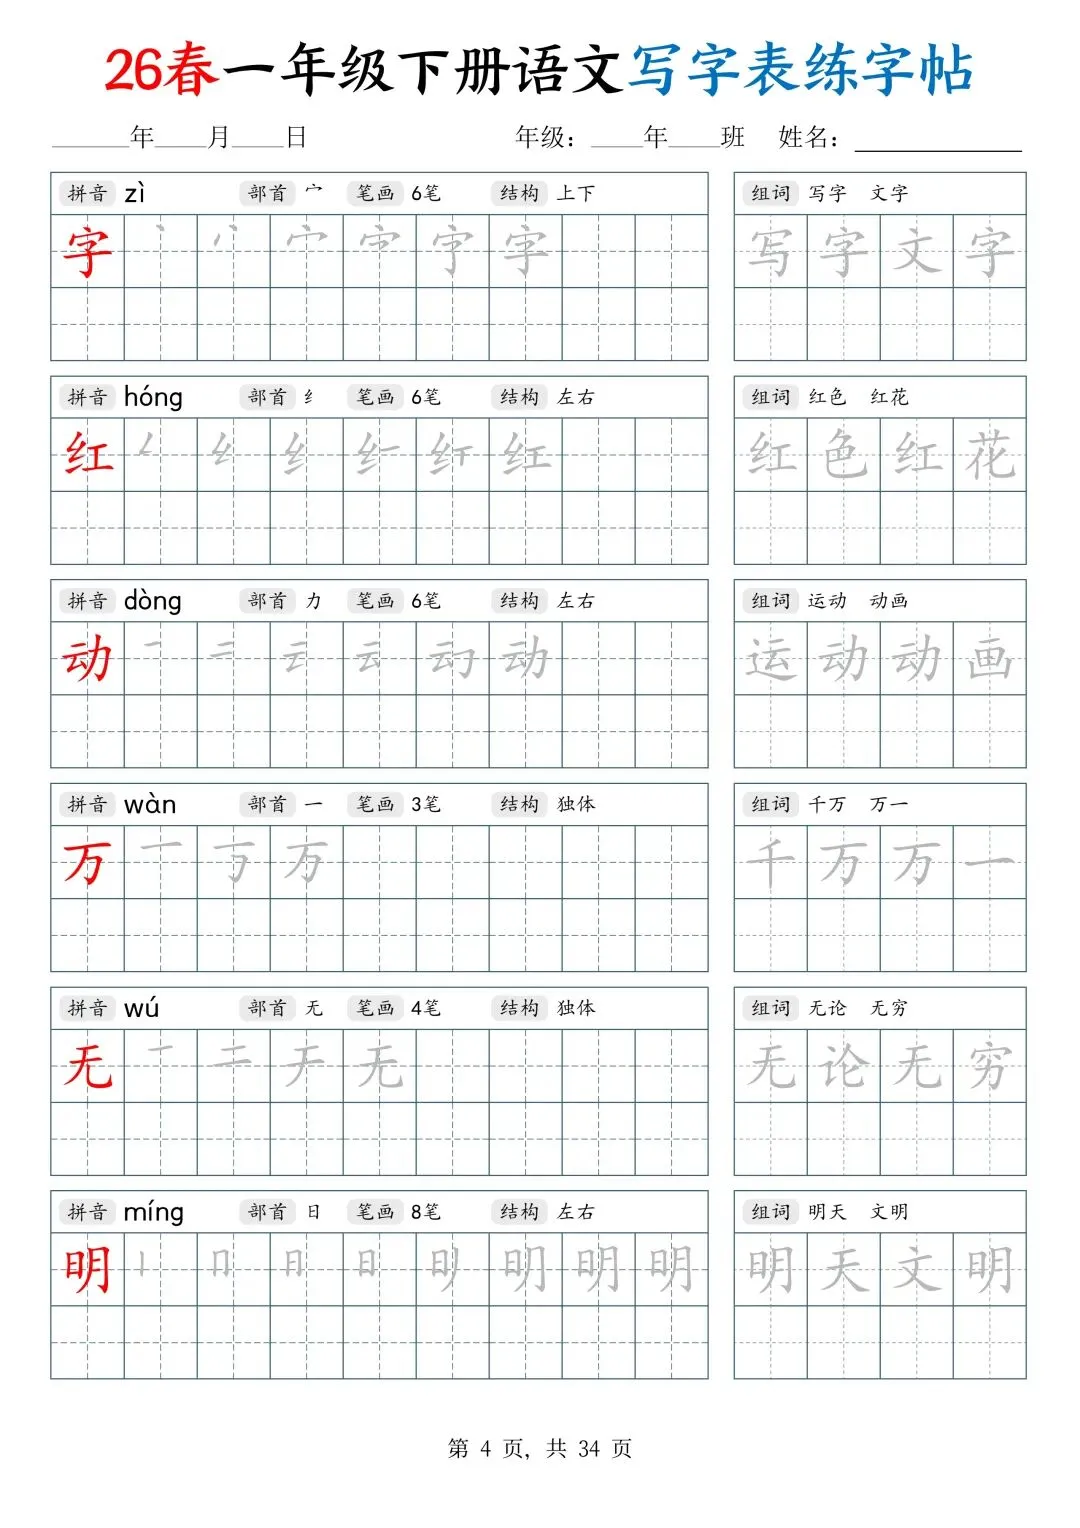 26春一年级下册语文写字表练字帖
______年____月____日 年级：____年____班 姓名：_____________
拼音 zì 部首 宀 笔画 6笔 结构 上下
组词 写字 文字
字
写字文字
拼音 hóng 部首 纟 笔画 6笔 结构 左右
组词 红色 红花
红 红
红色红花
拼音 dòng 部首 力 笔画 6笔 结构 左右
组词 运动 动画
动 动
运动动画
拼音 wàn 部首 一 笔画 3笔 结构 独体
组词 千万 万一
万 万
千万万一
拼音 wú 部首 无 笔画 4笔 结构 独体
组词 无论 无穷
无 无
无论无穷
拼音 míng 部首 日 笔画 8笔 结构 左右
组词 明天 文明
明 明
明天文明
第 4 页, 共 34 页